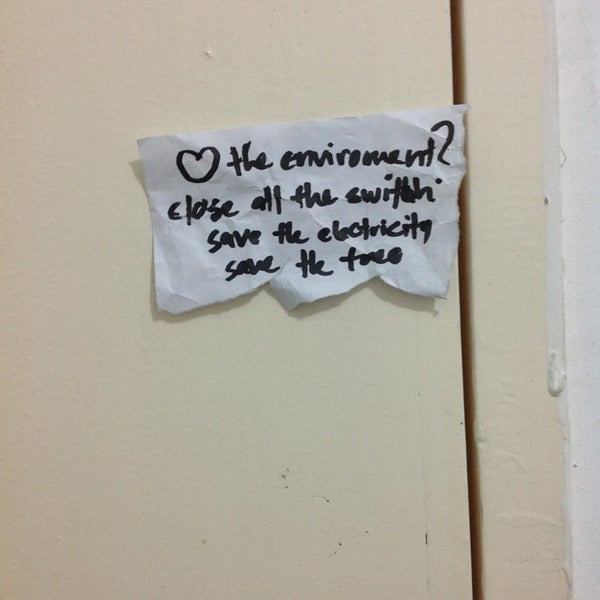 ♡ the enviroment?
close all the switch
save the electricity
save the trees